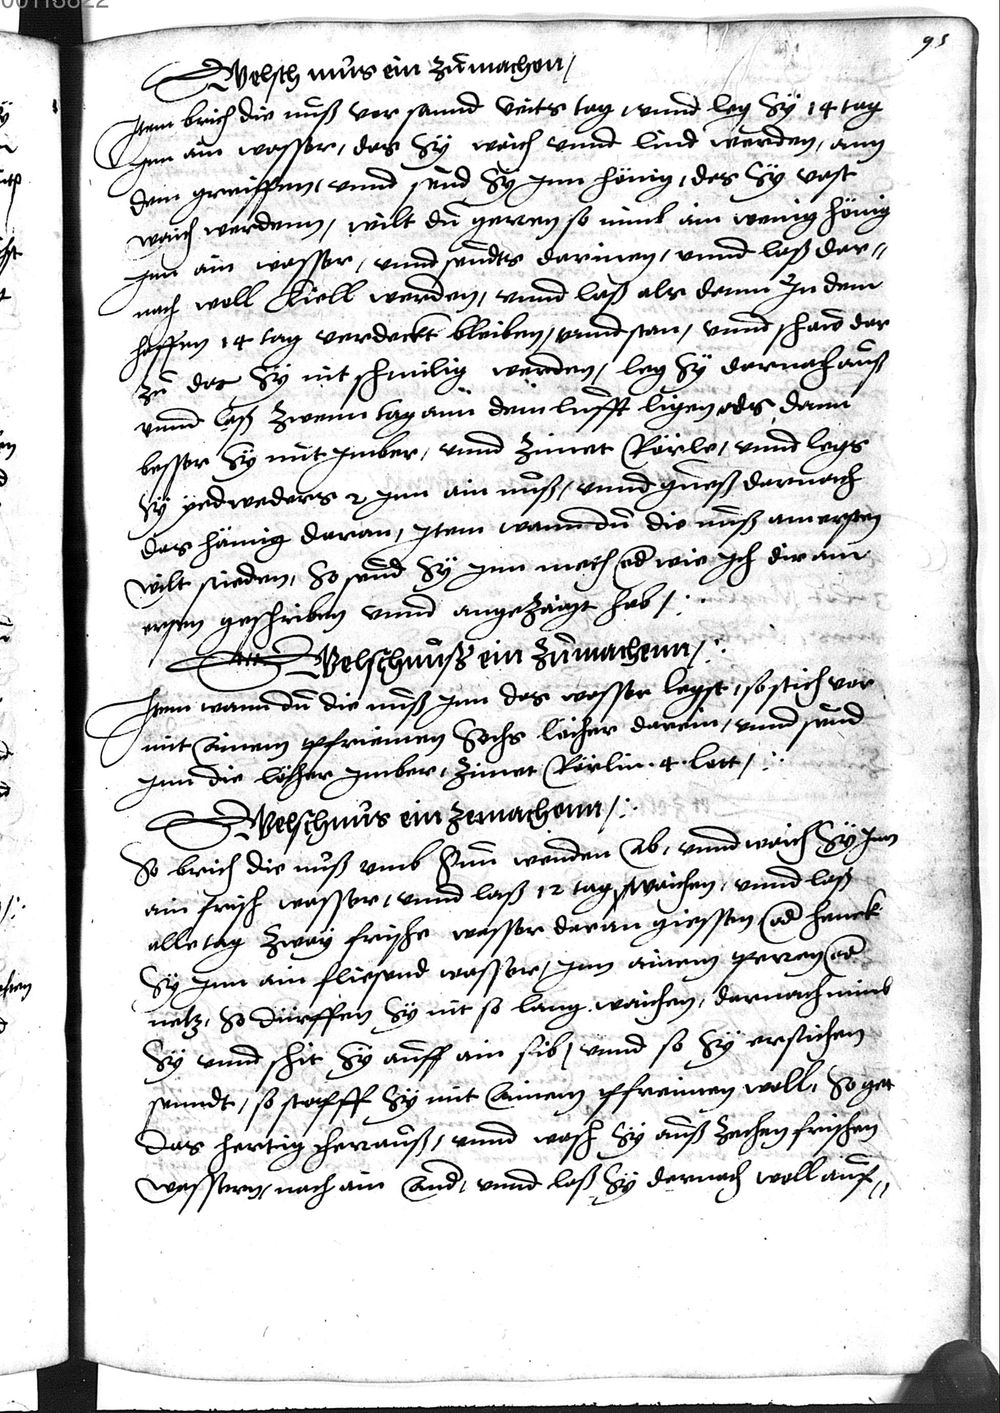 95
Welsch nus ein zumachen /
Item brich die nuß vor sannd veits tag, vnnd leg Sÿ 14 tag
Inn ain wasser, das Sÿ waich vnnd lind werden, ann
dem greiffen, vnnd seud Sÿ Inn hönig, das Sÿ vast
waich werdenn, wilt du geren so nimb ain wenig hönig
Inn ain wasser, vnnd seudts darinen, vnnd laß dar-
nach woll kiell werden, vnnd laß als dann In dem
haffen 14 tag verdeckt bleiben, vnnd stan, vnnd schaw dar
zu das Sÿ nit schmilig werden, leg Sÿ darnach auß
vnnd laß zwenn tag ann dem lufft ligen, als dann
besser Sÿ mit Imber, vnnd Zimet Rörle, vnnd legs
Sÿ yedweders 2 Inn ain nuß, vnnd gueß darnach
das hönig daran, Item wann du die nuß am ersten
wilt sieden, So seud Sÿ Inn meth od wie Ich dir am
ersten geschriben vnnd angezaigt hab /:
Welschnuß ein zumachenn /:
Item wann du die nuß Inn das wasser legst, so stich vor
mit Ainem pfriemen Sechs löcher darein, vnnd
Inn die löcher Imber, Zimet Rörlin .4. lott /:
Welschnus ein zemachenn /:
So brich die nuß vmb Sun wenden Ab, vnnd waich Sÿ Inn
ain frisch wasser, vnnd laß 12 tag waichen, vnnd laß
alle tag zway frische wasser daran giessen od henck
Sÿ Inn ain fliesend wasser, Inn ainem perren od
netz, So dürffen Sÿ nit so lang waichen, darnach nimb
Sÿ vnnd schit Sÿ auff ain sib, vnnd so Sÿ ersichen
senndt, so Sÿ mit Ainem pfreimen woll, So get
das hertig herauß, vnnd wasch Sÿ auß zechen frischen
wassern, nach ain And, vnnd laß Sÿ darnach woll auß-